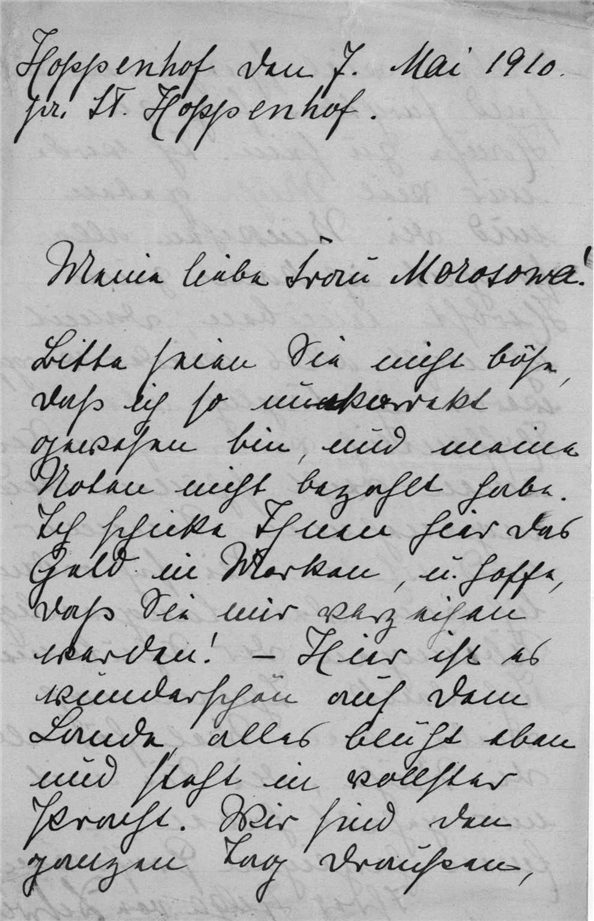 Hoppenhof den 7. Mai 1910.
pr. St. Hoppenhof.
Meine liebe Frau Morosowa!
Bitte seien Sie nicht böse,
daß ich so unkorrekt
gewesen bin, und meine
Noten nicht bezahlt habe.
Ich schicke Ihnen hier das
Geld in Marken, u. hoffe,
daß Sie mir verzeihen
werden! – Hier ist es
wunderschön auf dem
Lande, alles blüht eben
und steht in vollster
Pracht. Wir sind den
ganzen Tag draußen,